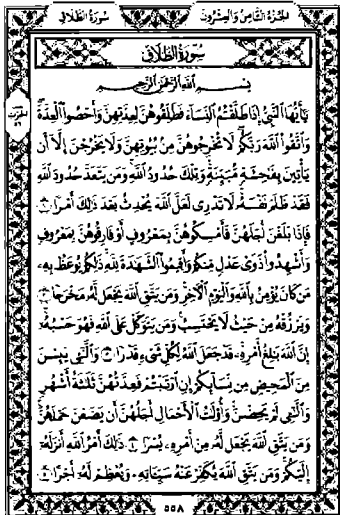 الجزء الثامن والعشرون سورة الطلاق
سورة الطلاق
بسم الله الرحمن الرحيم
يَٰٓأَيُّهَا ٱلنَّبِيُّ إِذَا طَلَّقْتُمُ ٱلنِّسَآءَ فَطَلِّقُوهُنَّ لِعِدَّتِهِنَّ وَأَحْصُوا۟ ٱلْعِدَّةَ
وَٱتَّقُوا۟ ٱللَّهَ رَبَّكُمْ لَا تُخْرِجُوهُنَّ مِنۢ بُيُوتِهِنَّ وَلَا يَخْرُجْنَ إِلَّآ أَن
يَأْتِينَ بِفَٰحِشَةٍ مُّبَيِّنَةٍ وَتِلْكَ حُدُودُ ٱللَّهِ وَمَن يَتَعَدَّ حُدُودَ ٱللَّهِ
فَقَدْ ظَلَمَ نَفْسَهُۥ لَا تَدْرِى لَعَلَّ ٱللَّهَ يُحْدِثُ بَعْدَ ذَٰلِكَ أَمْرًا ١
فَإِذَا بَلَغْنَ أَجَلَهُنَّ فَأَمْسِكُوهُنَّ بِمَعْرُوفٍ أَوْ فَارِقُوهُنَّ بِمَعْرُوفٍ
وَأَشْهِدُوا۟ ذَوَىْ عَدْلٍ مِّنكُمْ وَأَقِيمُوا۟ ٱلشَّهَٰدَةَ لِلَّهِ ذَٰلِكُمْ يُوعَظُ بِهِۦ
مَن كَانَ يُؤْمِنُ بِٱللَّهِ وَٱلْيَوْمِ ٱلْءَاخِرِ وَمَن يَتَّقِ ٱللَّهَ يَجْعَل لَّهُۥ مَخْرَجًا ٢
وَيَرْزُقْهُ مِنْ حَيْثُ لَا يَحْتَسِبُ وَمَن يَتَوَكَّلْ عَلَى ٱللَّهِ فَهُوَ حَسْبُهُۥٓ
إِنَّ ٱللَّهَ بَٰلِغُ أَمْرِهِۦ قَدْ جَعَلَ ٱللَّهُ لِكُلِّ شَىْءٍ قَدْرًا ٣ وَٱلَّٰٓـِٔى يَئِسْنَ
مِنَ ٱلْمَحِيضِ مِن نِّسَآئِكُمْ إِنِ ٱرْتَبْتُمْ فَعِدَّتُهُنَّ ثَلَٰثَةُ أَشْهُرٍ
وَٱلَّٰٓـِٔى لَمْ يَحِضْنَ وَأُو۟لَٰتُ ٱلْأَحْمَالِ أَجَلُهُنَّ أَن يَضَعْنَ حَمْلَهُنَّ
وَمَن يَتَّقِ ٱللَّهَ يَجْعَل لَّهُۥ مِنْ أَمْرِهِۦ يُسْرًا ٤ ذَٰلِكَ أَمْرُ ٱللَّهِ أَنزَلَهُۥٓ
إِلَيْكُمْ وَمَن يَتَّقِ ٱللَّهَ يُكَفِّرْ عَنْهُ سَيِّـَٔاتِهِۦ وَيُعْظِمْ لَهُۥٓ أَجْرًا ٥
٥٥٨